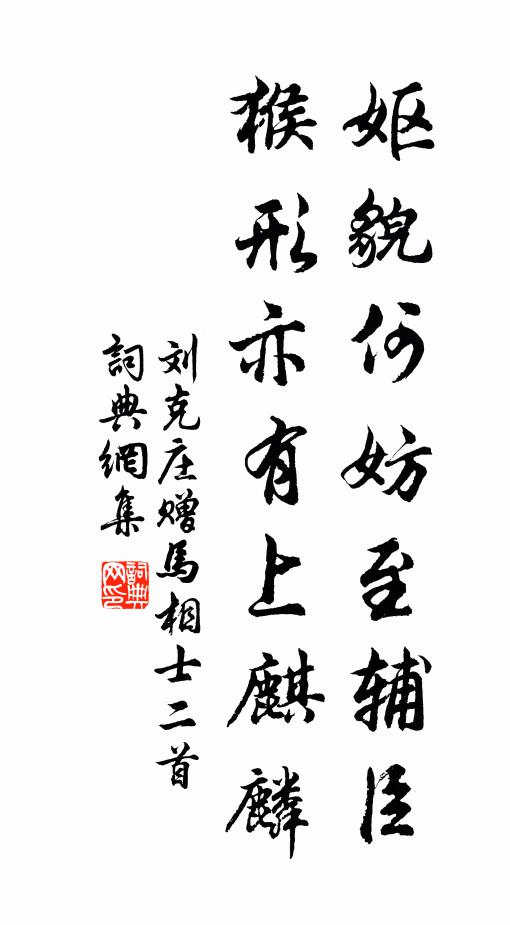 妪貌何妨至辅臣
猴形亦有上麒麟
刘克庄赠馬相士二首
詞典網集
詞典网印